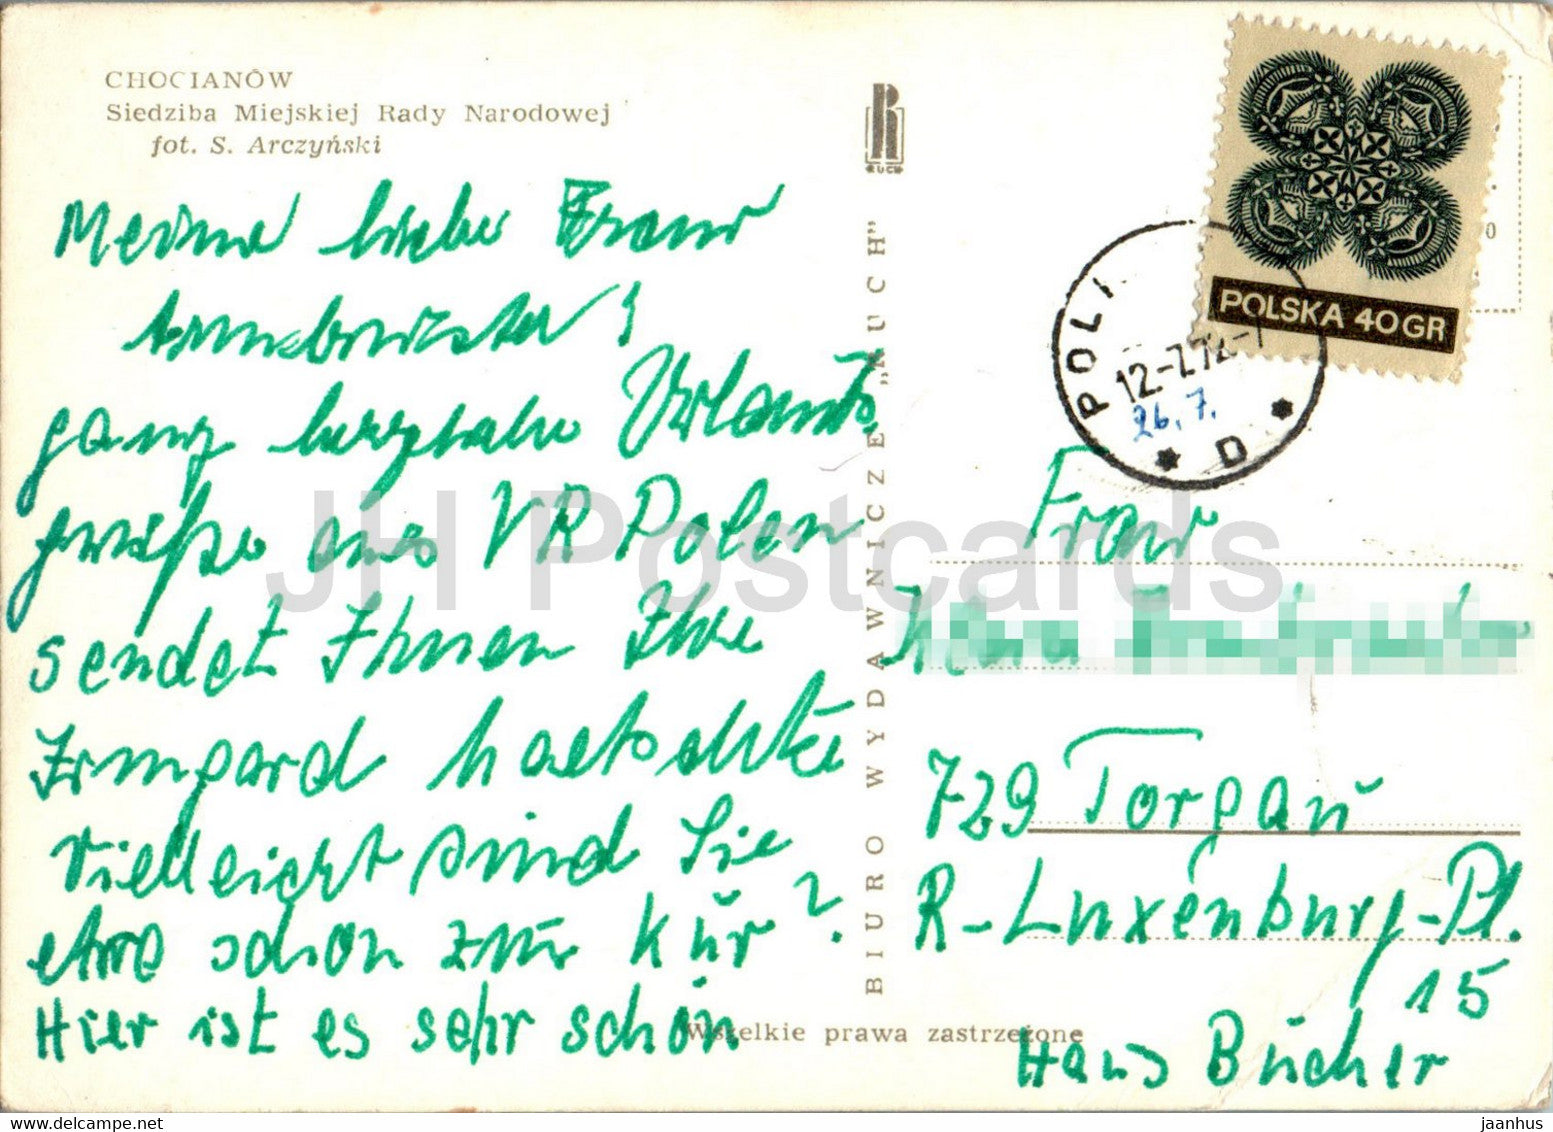 CHOCIANÓW
Siedziba Miejskiej Rady Narodowej
fot. S. Arczyński
Meine liebe Frau
Armbruster!
ganz herzliche Urlaubs
grüße aus VR Polen
sendet Ihnen Ihre
Irmgard
Vielleicht sind Sie
etwa schon zur Kur?
Hier ist es sehr schön
RUCH
BIURO WYDAWNICZE „RUCH"
Wszelkie prawa zastrzeżone
POLSKA 40GR
POLI
12-7.72-
D
26.7.
Frau
729 Torgau
R-Luxenburg-Pl.
15
Haus Bücher
JH Postcards
hippostcard.com/store/jhpostcards
jaanhus